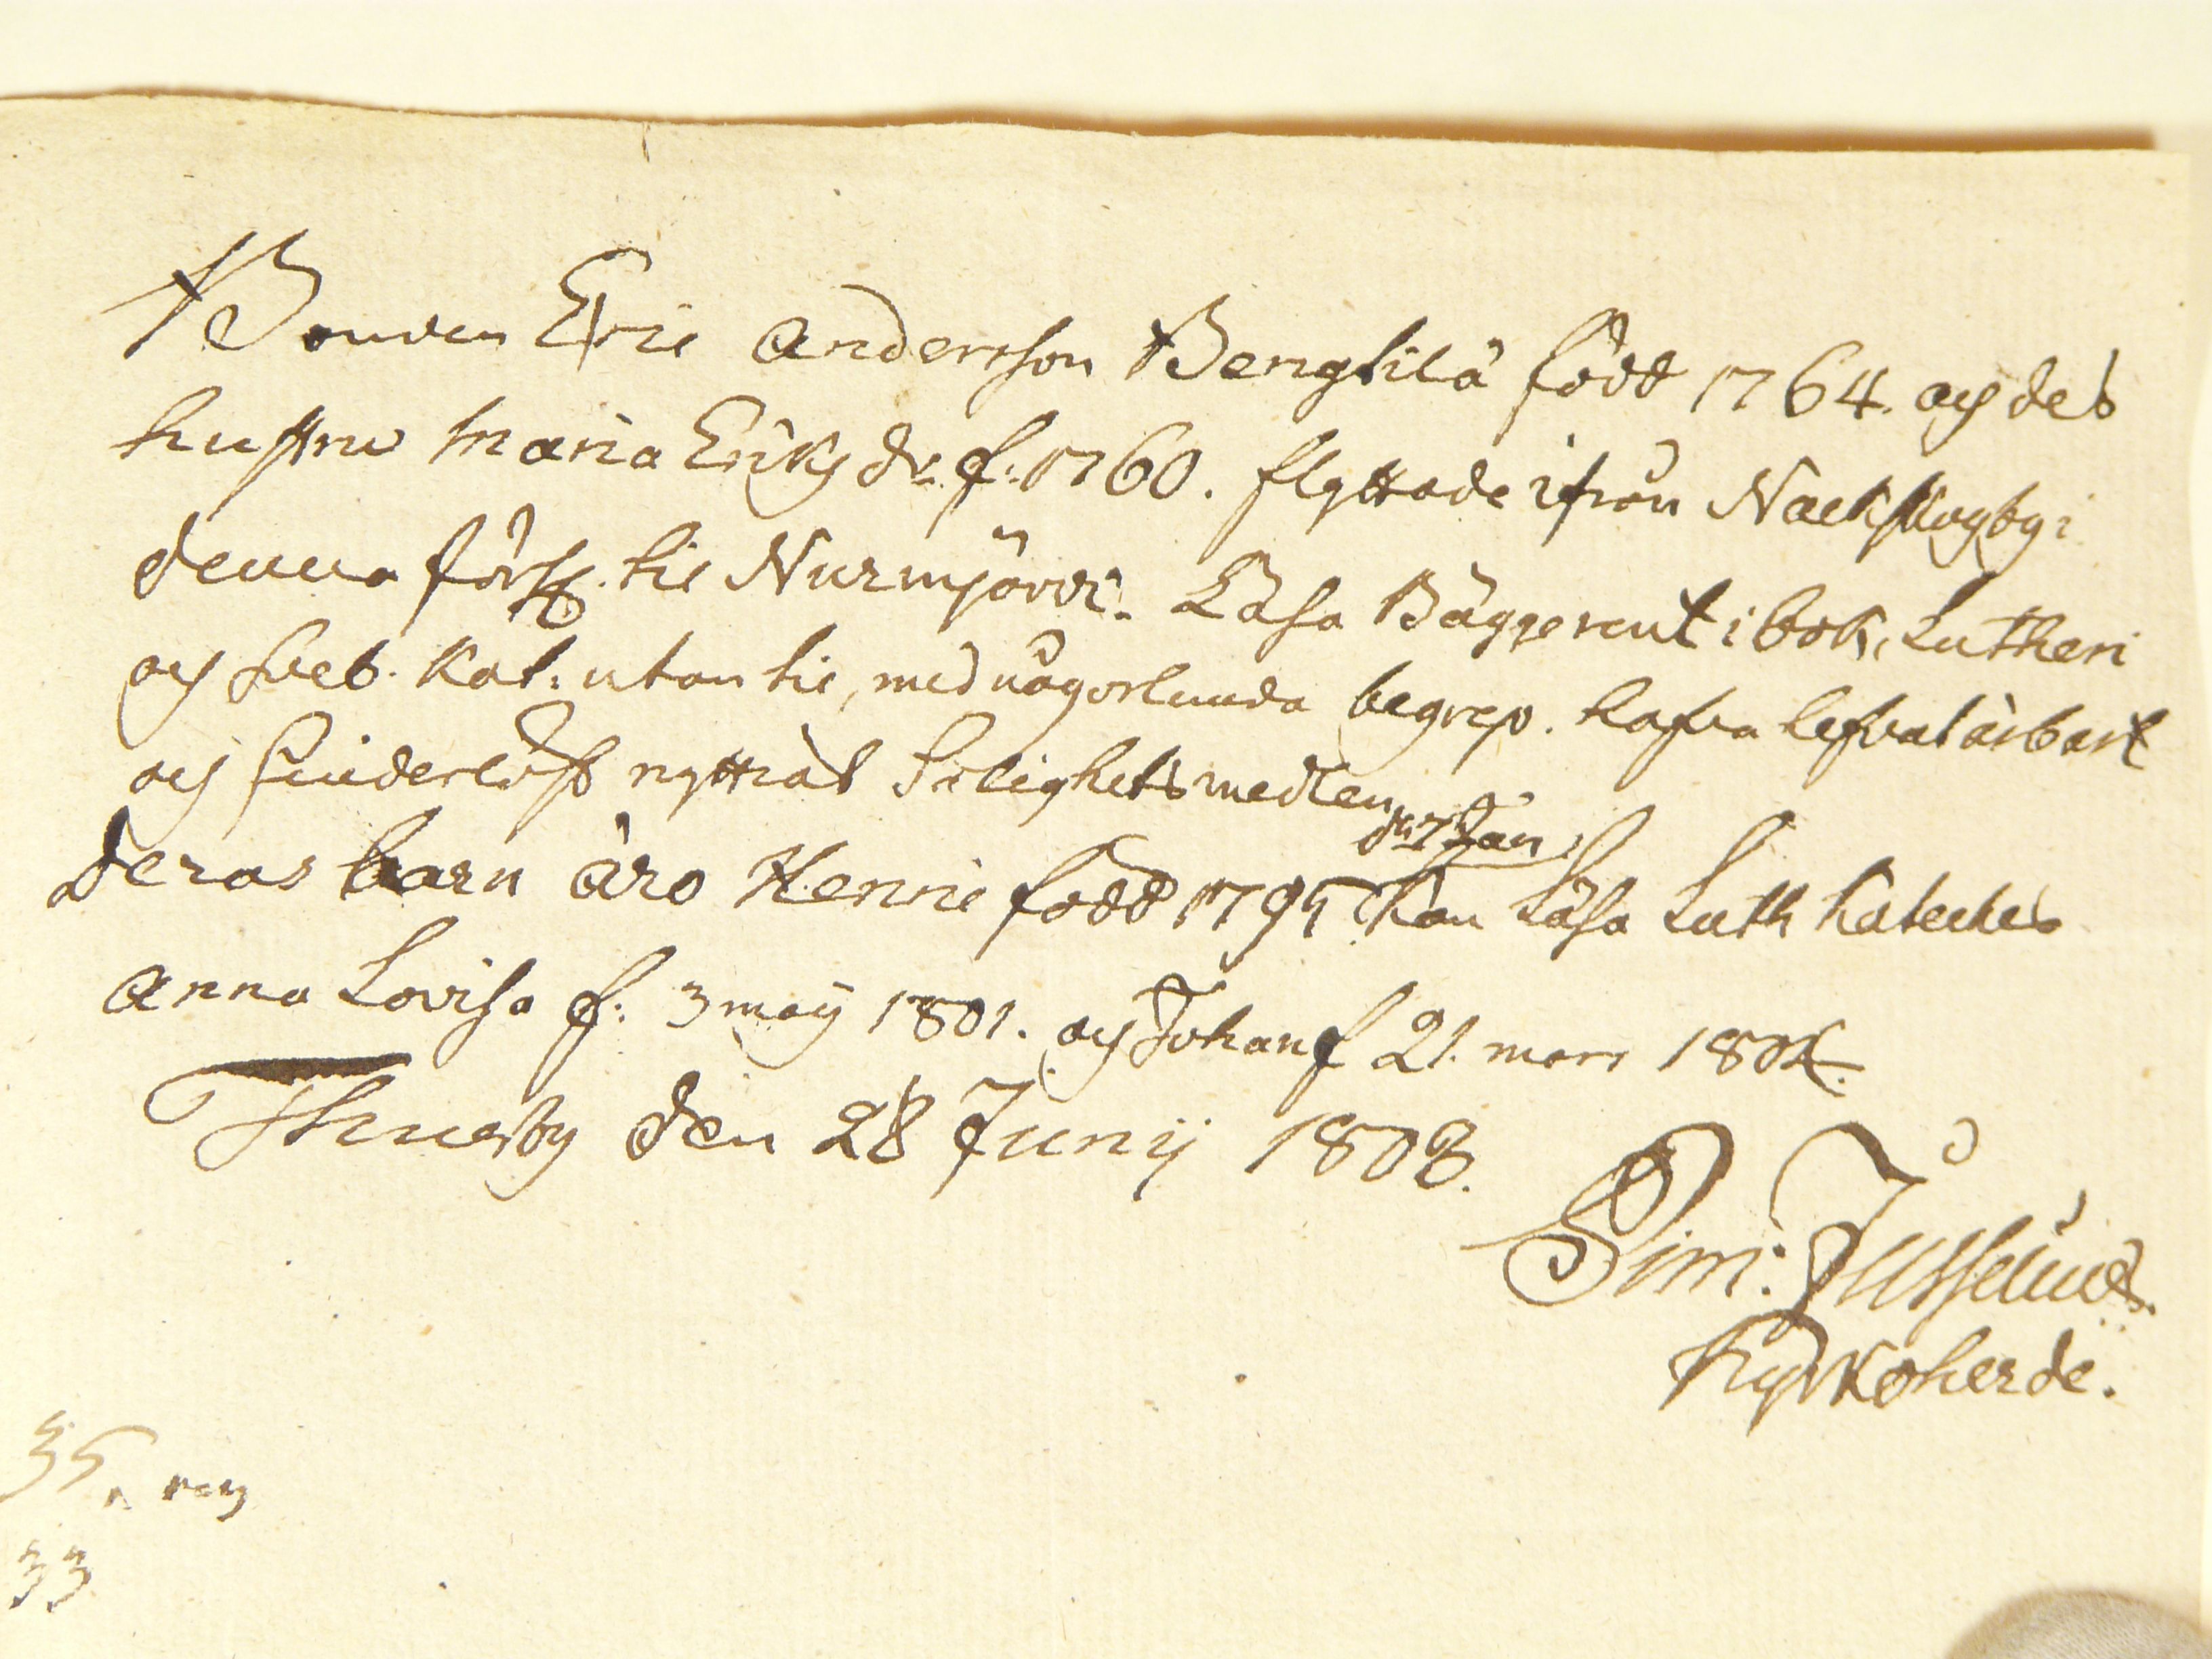 Bonden Eric Andersson Bengtilä född 1764. och des
hustru Maria Ericks dr. f. 1760. flyttade ifrån Nackskogby i
denna förs. til Nurmijärvi. Läsa Bägge rent i bok, Lutheri
och Sveb. Kat. utan til, med någorlunda begrep. hafva lefvat ärbart
och hinderlöst nyttiat Salighetsmedlen
d. 7 Jan.
Deras barn äro Henric född 1795 kan Läsa Luth Kateches
Anna Lovisa f. 3 maij 1801. och Johan f 21. mars 1804.
Thusby den 28 Junij 1808.
Sim: Jusselius.
Kyrkoherde.
35
33